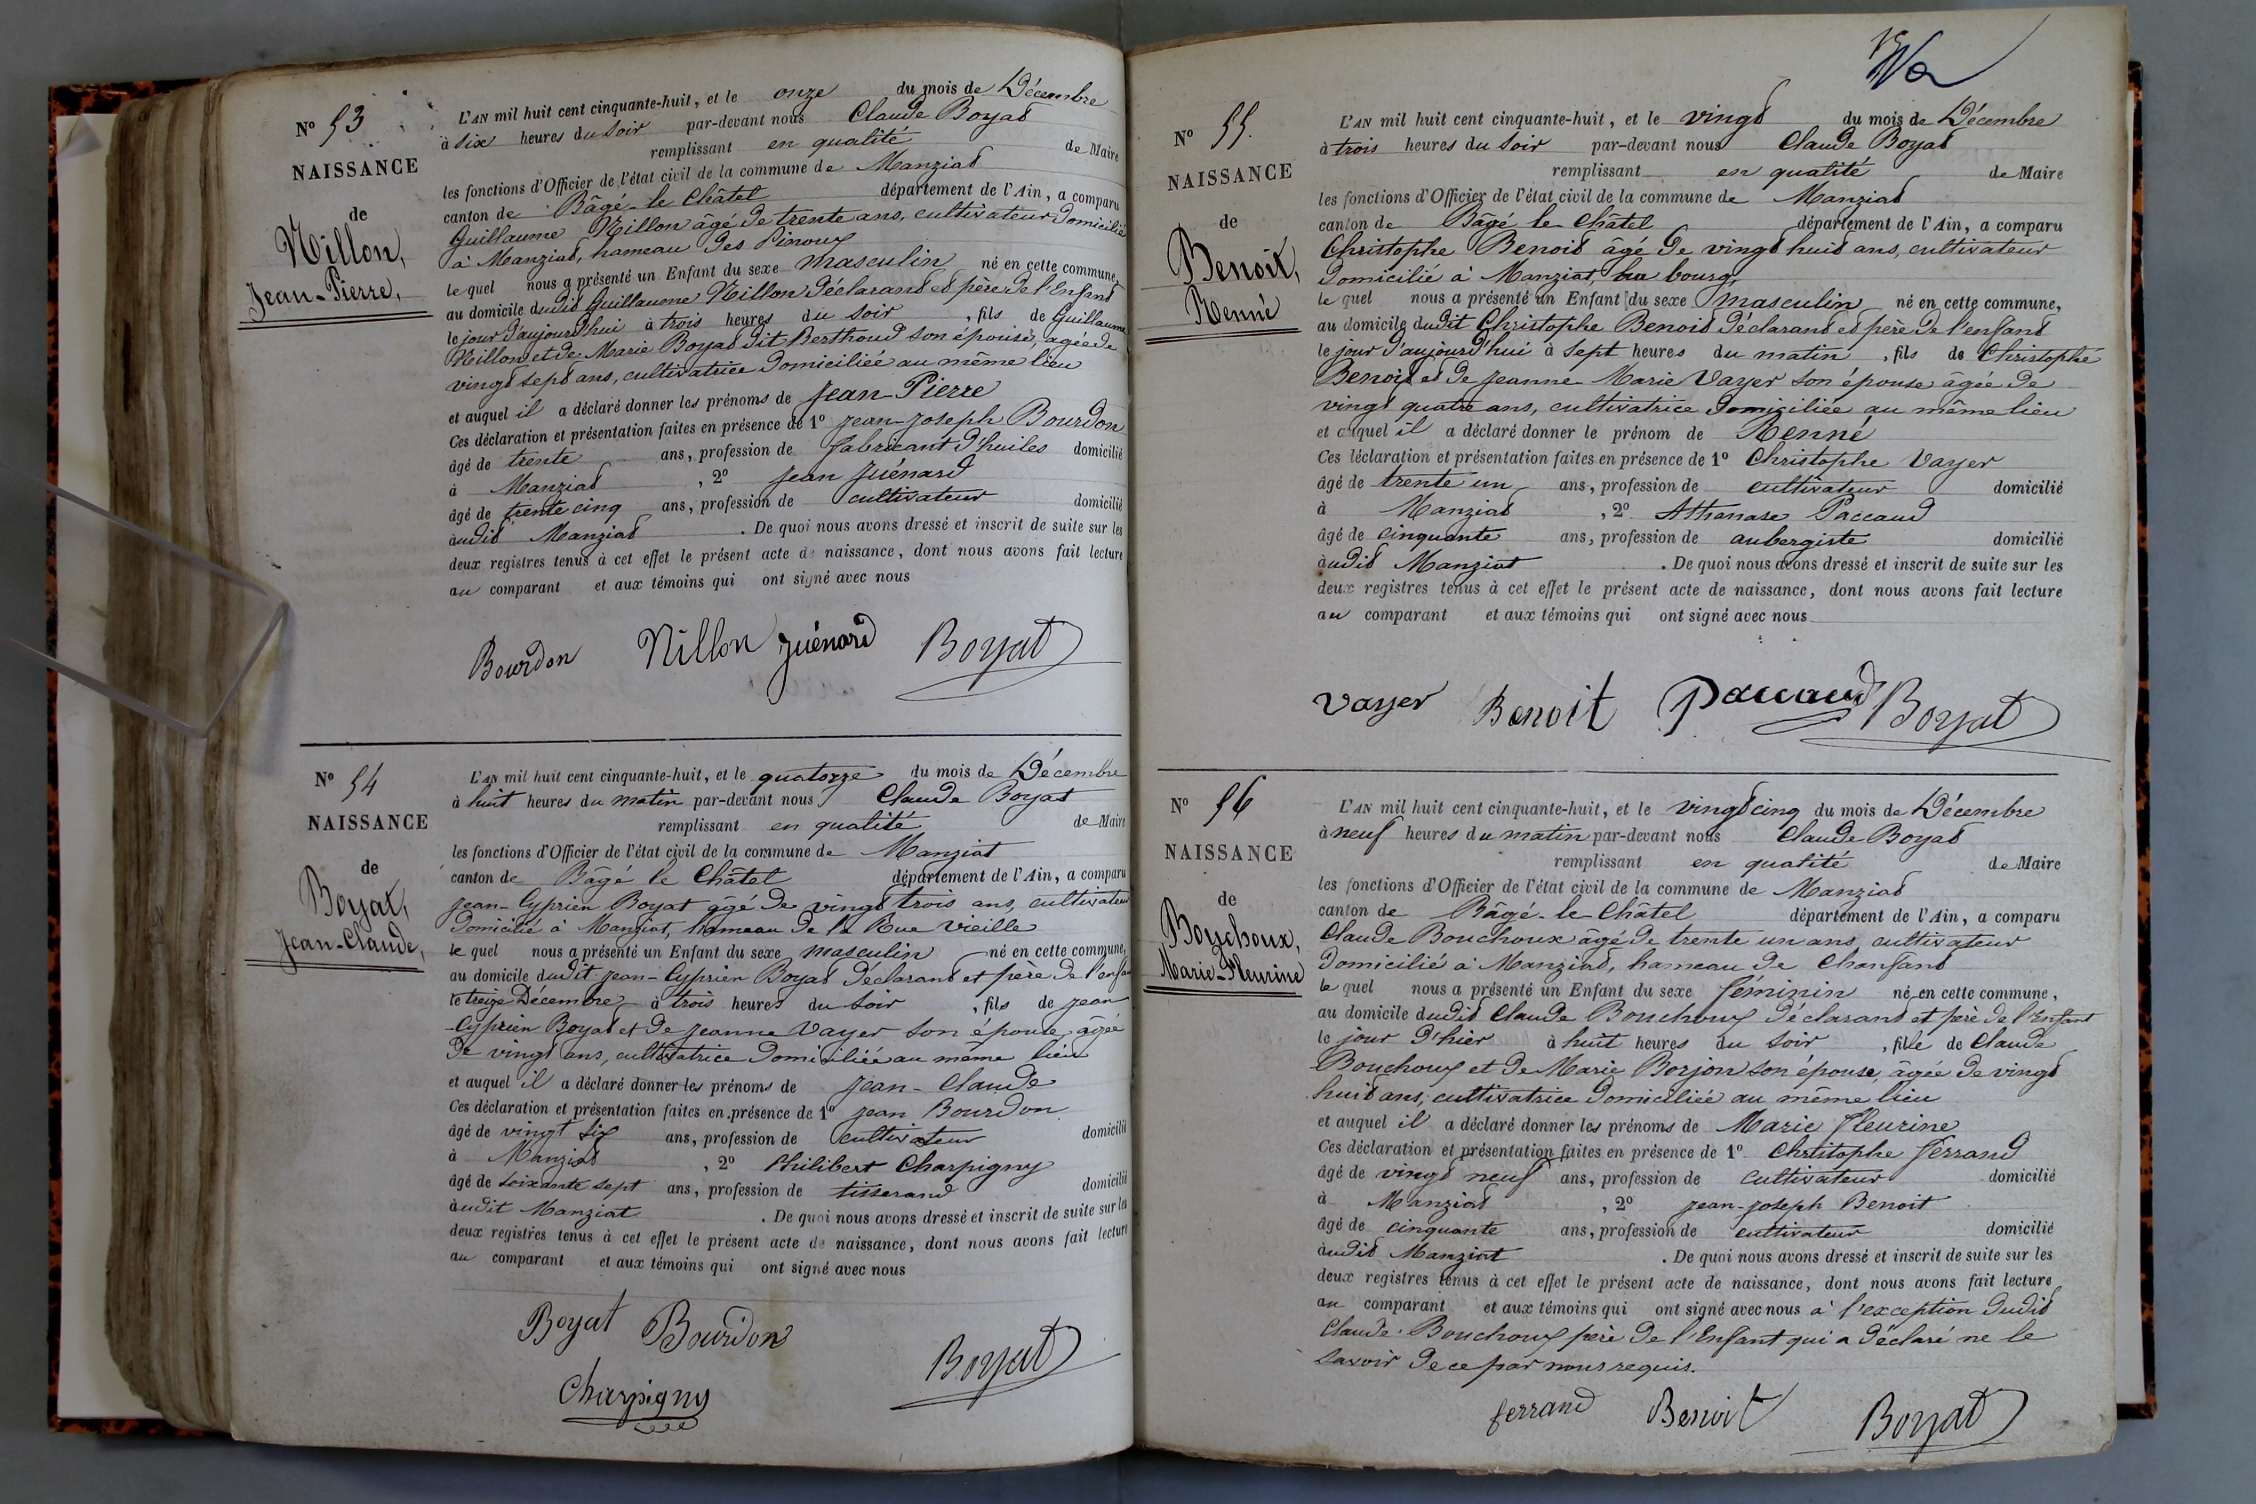 N° 53
NAISSANCE
de
Nillon,
Jean-Pierre,
L'AN mil huit cent cinquante-huit, et le onze du mois de Décembre
à six heures du soir par-devant nous Claude Boyat
remplissant en qualité de Maire
les fonctions d'Officier de l'état civil de la commune de Manziat
canton de Bâgé-le Châtel département de l'Ain, a comparu
Guillaume Nillon âgé de trente ans, cultivateur domicilié
à Manziat, hameau des Pinoux
le quel nous a présenté un Enfant du sexe masculin né en cette commune,
au domicile dudit Guillaume Nillon déclarant et père de l'Enfant
le jour d'aujourd'hui à trois heures du soir, fils de Guillaume
Nillon et de Marie Boyat dit Berthoud son épouse, agée de
vingt sept ans, cultivatrice domiciliée au même lieu
et auquel il a déclaré donner les prénoms de Jean Pierre
Ces déclaration et présentation faites en présence de 1° Jean-Joseph Bourdon
âgé de trente ans, profession de fabricant d'huiles domicilié
à Manziat, 2° Jean Guénard
âgé de trente cinq ans, profession de cultivateur domicilié
audit Manziat. De quoi nous avons dressé et inscrit de suite sur les
deux registres tenus à cet effet le présent acte de naissance, dont nous avons fait lecture
au comparant et aux témoins qui ont signé avec nous
Bourdon Nillon Guénard Boyat
N° 54
NAISSANCE
de
Boyat,
Jean-Claude,
L'AN mil huit cent cinquante-huit, et le quatorze du mois de Décembre
à huit heures du matin par-devant nous Claude Boyat
remplissant en qualité de Maire
les fonctions d'Officier de l'état civil de la commune de Manziat
canton de Bâgé le Châtel département de l'Ain, a comparu
Jean-Cyprien Boyat âgé de vingt trois ans, cultivateur
domicilié à Manziat, hameau de la Rue vieille
le quel nous a présenté un Enfant du sexe masculin né en cette commune,
au domicile dudit Jean-Cyprien Boyat déclarant et père de l'enfa
le treize Décembre à trois heures du soir, fils de Jean
-Cyprien Boyat et de Jeanne Vayer son épouse âgée
de vingt ans, cultivatrice domiciliée au même lieu
et auquel il a déclaré donner les prénoms de Jean-Claude
Ces déclaration et présentation faites en présence de 1° Jean Bourdon
âgé de vingt six ans, profession de cultivateur domicilié
à Manziat, 2° Philibert Charpigny
âgé de soixante sept ans, profession de tisserand domicilié
audit Manziat. De quoi nous avons dressé et inscrit de suite sur les
deux registres tenus à cet effet le présent acte de naissance, dont nous avons fait lecture
au comparant et aux témoins qui ont signé avec nous
Boyat Bourdon
Charpigny Boyat
N° 55.
NAISSANCE
de
Benoit,
Renné
L'AN mil huit cent cinquante-huit, et le vingt du mois de Décembre
à trois heures du soir par-devant nous Claude Boyat
remplissant en qualité de Maire
les fonctions d'Officier de l'état civil de la commune de Manziat
canton de Bâgé le Châtel département de l'Ain, a comparu
Christophe Benoit âgé de vingt huit ans, cultivateur
domicilié à Manziat, au bourg,
le quel nous a présenté un Enfant du sexe masculin né en cette commune,
au domicile dudit Christophe Benoit déclarant et père de l'enfant
le jour d'aujourd'hui à sept heures du matin, fils de Christophe
Benoit et de Jeanne-Marie Vayer son épouse âgée de
vingt quatre ans, cultivatrice domiciliée au même lieu
et auquel il a déclaré donner le prénom de Renné
Ces déclaration et présentation faites en présence de 1° Christophe Vayer
âgé de trente un ans, profession de cultivateur domicilié
à Manziat, 2° Athanase Paccaud
âgé de cinquante ans, profession de aubergiste domicilié
audit Manziat. De quoi nous avons dressé et inscrit de suite sur les
deux registres tenus à cet effet le présent acte de naissance, dont nous avons fait lecture
au comparant et aux témoins qui ont signé avec nous
Vayer Benoit Paccaud Boyat
N° 56
NAISSANCE
de
Bouchoux,
Marie-Fleurine
L'AN mil huit cent cinquante-huit, et le vingt cinq du mois de Décembre
à neuf heures du matin par-devant nous Claude Boyat
remplissant en qualité de Maire
les fonctions d'Officier de l'état civil de la commune de Manziat
canton de Bâgé-le Châtel département de l'Ain, a comparu
Claude Bouchoux âgé de trente un ans, cultivateur
domicilié à Manziat, hameau de Chanfant
le quel nous a présenté un Enfant du sexe féminin né en cette commune,
au domicile dudit Claude Bouchoux déclarant et père de l'Enfant
le jour d'hier à huit heures du soir, fille de Claude
Bouchoux et de Marie Borjon son épouse, âgée de vingt
huit ans, cultivatrice domiciliée au même lieu
et auquel il a déclaré donner les prénoms de Marie fleurine
Ces déclaration et présentation faites en présence de 1° Chrititophe ferrand
âgé de vingt neuf ans, profession de cultivateur domicilié
à Manziat, 2° Jean-Joseph Benoit
âgé de cinquante ans, profession de cultivateur domicilié
audit Manziat. De quoi nous avons dressé et inscrit de suite sur les
deux registres tenus à cet effet le présent acte de naissance, dont nous avons fait lecture
au comparant et aux témoins qui ont signé avec nous à l'exception dudit
Claude Bouchoux père de l'Enfant qui a déclaré ne le
savoir de ce par nous requis.
ferrand Benoit Boyat